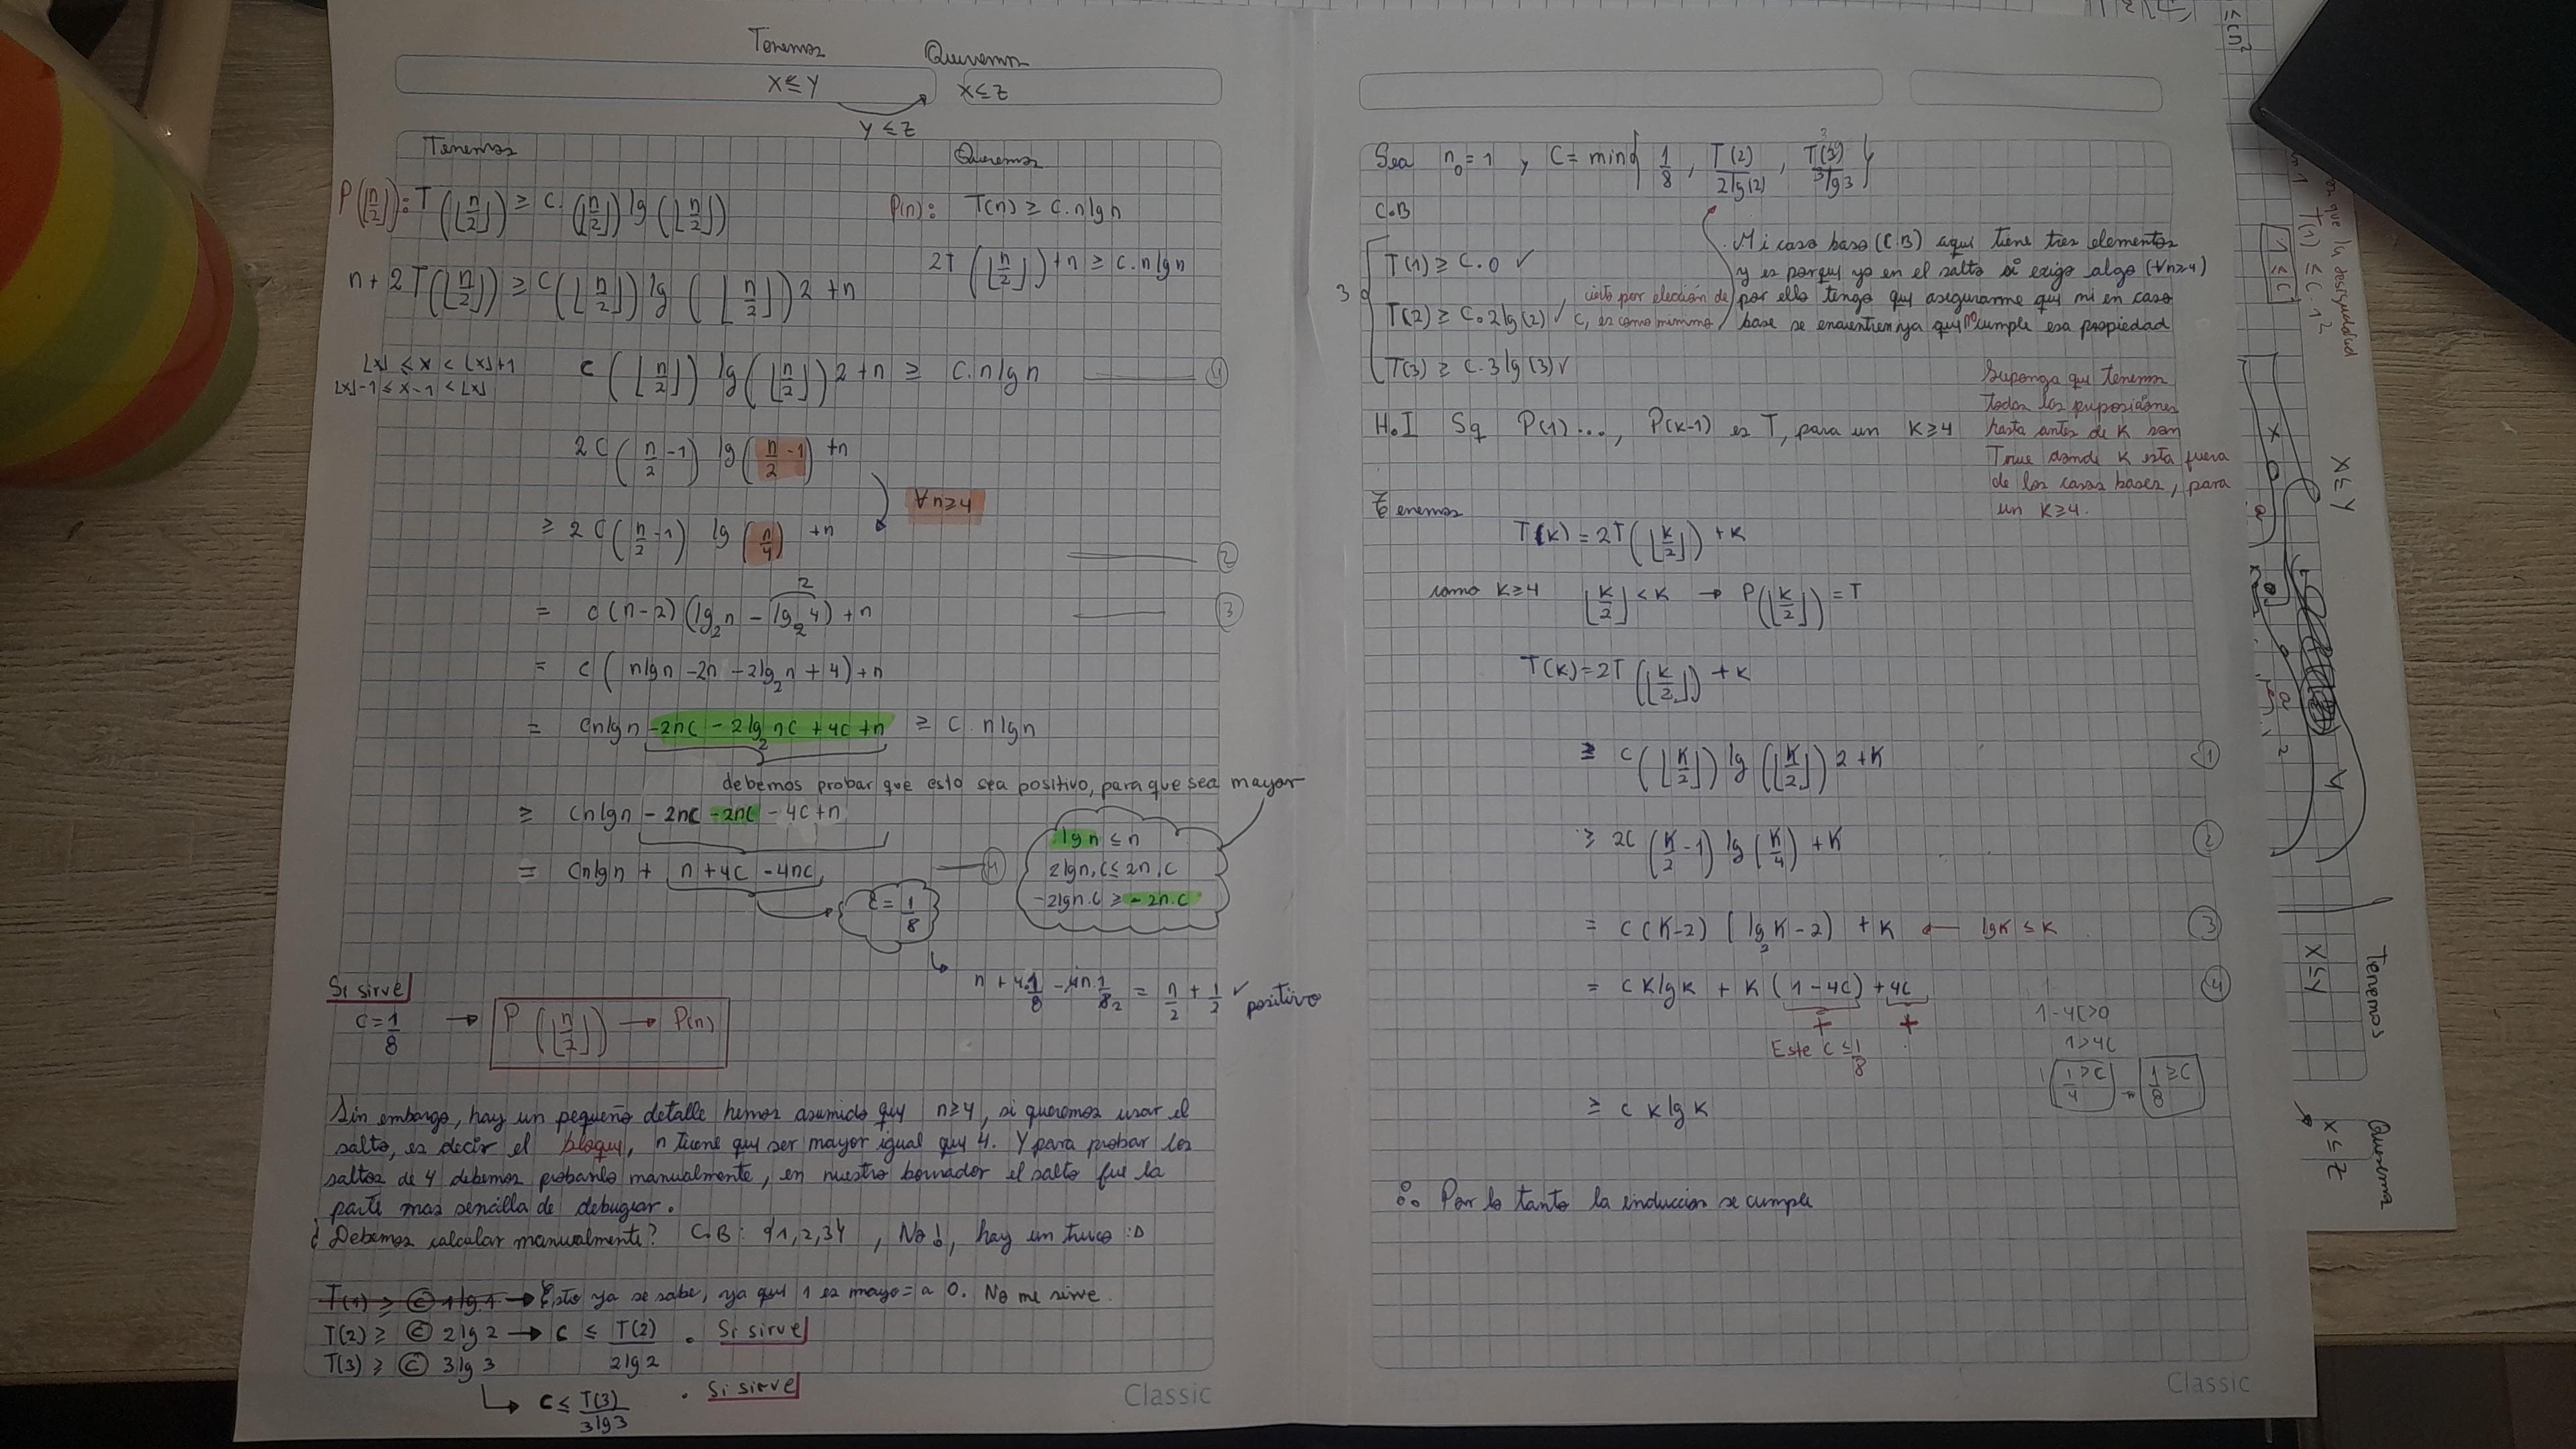 Tenemos
Queremos
X ≤ Y
X ≤ Z
Y ≤ Z
Tenemos
Queremos
P(⌊n/2⌋): T(⌊n/2⌋) ≥ c.(⌊n/2⌋) lg(⌊n/2⌋)
P(n): T(n) ≥ c.n lg n
2T(⌊n/2⌋)+n ≥ c.n lg n
n + 2T(⌊n/2⌋) ≥ c(⌊n/2⌋) lg(⌊n/2⌋)2 + n
⌊x⌋ ≤ x < ⌊x⌋+1
⌊x⌋-1 ≤ x-1 < ⌊x⌋
c(⌊n/2⌋) lg(⌊n/2⌋)2 + n ≥ c.n lg n 1
2C(n/2 -1) lg(n/2 -1) + n
∀n≥4
≥ 2C(n/2 -1) lg(n/4) + n
2
= c(n-2)(lg₂n - lg₂4) + n 3
2
= c(nlgn -2n -2lg₂n + 4) + n
= cnlgn -2nc - 2lg₂nc + 4c + n ≥ c.nlgn
debemos probar que esto sea positivo, para que sea mayor
≥ cnlgn - 2nc -2nc - 4c + n
= cnlgn + n + 4c - 4nc 4
lgn ≤ n
2lgn.c ≤ 2n.c
-2lgn.c ≥ -2n.c
c = 1/8
n + 4.1/8 - 4n.1/8 2 = n/2 + 1/2 ✓ positivo
Si sirve
c = 1/8 → P(⌊n/2⌋) → P(n)
Sin embargo, hay un pequeño detalle hemos asumido que n≥4, si queremos usar el
salto, es decir el bloque, n tiene que ser mayor igual que 4. Y para probar los
saltos de 4 debemos probarlo manualmente, en nuestro borrador el salto fue la
parte mas sencilla de debugear.
¿Debemos calcular manualmente? C.B: {1,2,3} , No!, hay un truco :D
T(1) ≥ c 1lg.1 → Esto ya se sabe, ya que 1 es mayo= a 0. No me sirve.
T(2) ≥ c 2lg2 → c ≤ T(2)/2lg2 . Si sirve
T(3) ≥ c 3lg3
→ c ≤ T(3)/3lg3 . Si sirve
Classic
Sea n₀=1 y C= min{1/8, T(2)/2lg(2), T(3)/3lg3}
C.B
3
T(1) ≥ c.0 ✓
T(2) ≥ c.2lg(2) ✓
T(3) ≥ c.3lg(3) ✓
cierto por elección de
c, es como minimo
. Mi caso base (C.B) aqui tiene tres elementos
y es porque yo en el salto si exigo algo (∀n≥4)
por ello tengo que asegurarme que mi en caso
base se encuentren ya que no cumple esa propiedad
H.I Sq P(1)..., P(k-1) es T, para un K≥4
Suponga que tenemos
todas las proposiciones
hasta antes de K son
True donde K esta fuera
de los casos bases, para
un K≥4.
Tenemos
T(k) = 2T(⌊k/2⌋) + k
como K≥4 ⌊k/2⌋ < k → P(⌊k/2⌋) = T
T(k) = 2T(⌊k/2⌋) + k
≥ c(⌊k/2⌋) lg(⌊k/2⌋)2 + k 1
≥ 2c(k/2 -1) lg(k/4) + k 2
= c(k-2)(lg₂k -2) + k ← lgk ≤ k 3
= cklgk + k(1-4c) + 4c 4
+ +
Este c ≤ 1/8
1-4c>0
1>4c
1/4 > c → 1/8 ≥ c
≥ c k lg k
∴ Por lo tanto la induccion se cumple
Classic
≤ cn²
T(1) ≤ c.1²
1 ≤ c
X ≤ Y
Tenemos
X ≤ Y
Queremos
X ≤ Z